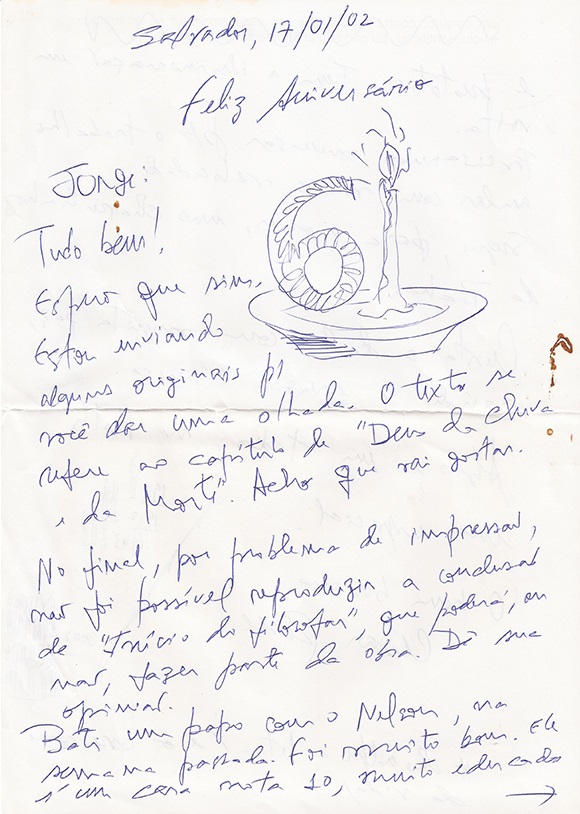 Salvador, 17/01/02
Feliz Aniversário
Jorge:
Tudo bem!,
Espero que sim.
Estou enviando
alguns originais p/
você dar uma olhada. O texto se
refere ao capítulo de "Deus da Chuva
e da Morte". Acho que vai gostar.
No final, por problema de impressão,
não foi possível reproduzir a conclusão
de "Início do filosofar", que poderá, ou
não, fazer parte da obra. Dê sua
opinião.
Bati um papo com o Nelson, na
semana passada. Foi muito bom. Ele
é um cara nota 10, muito educado